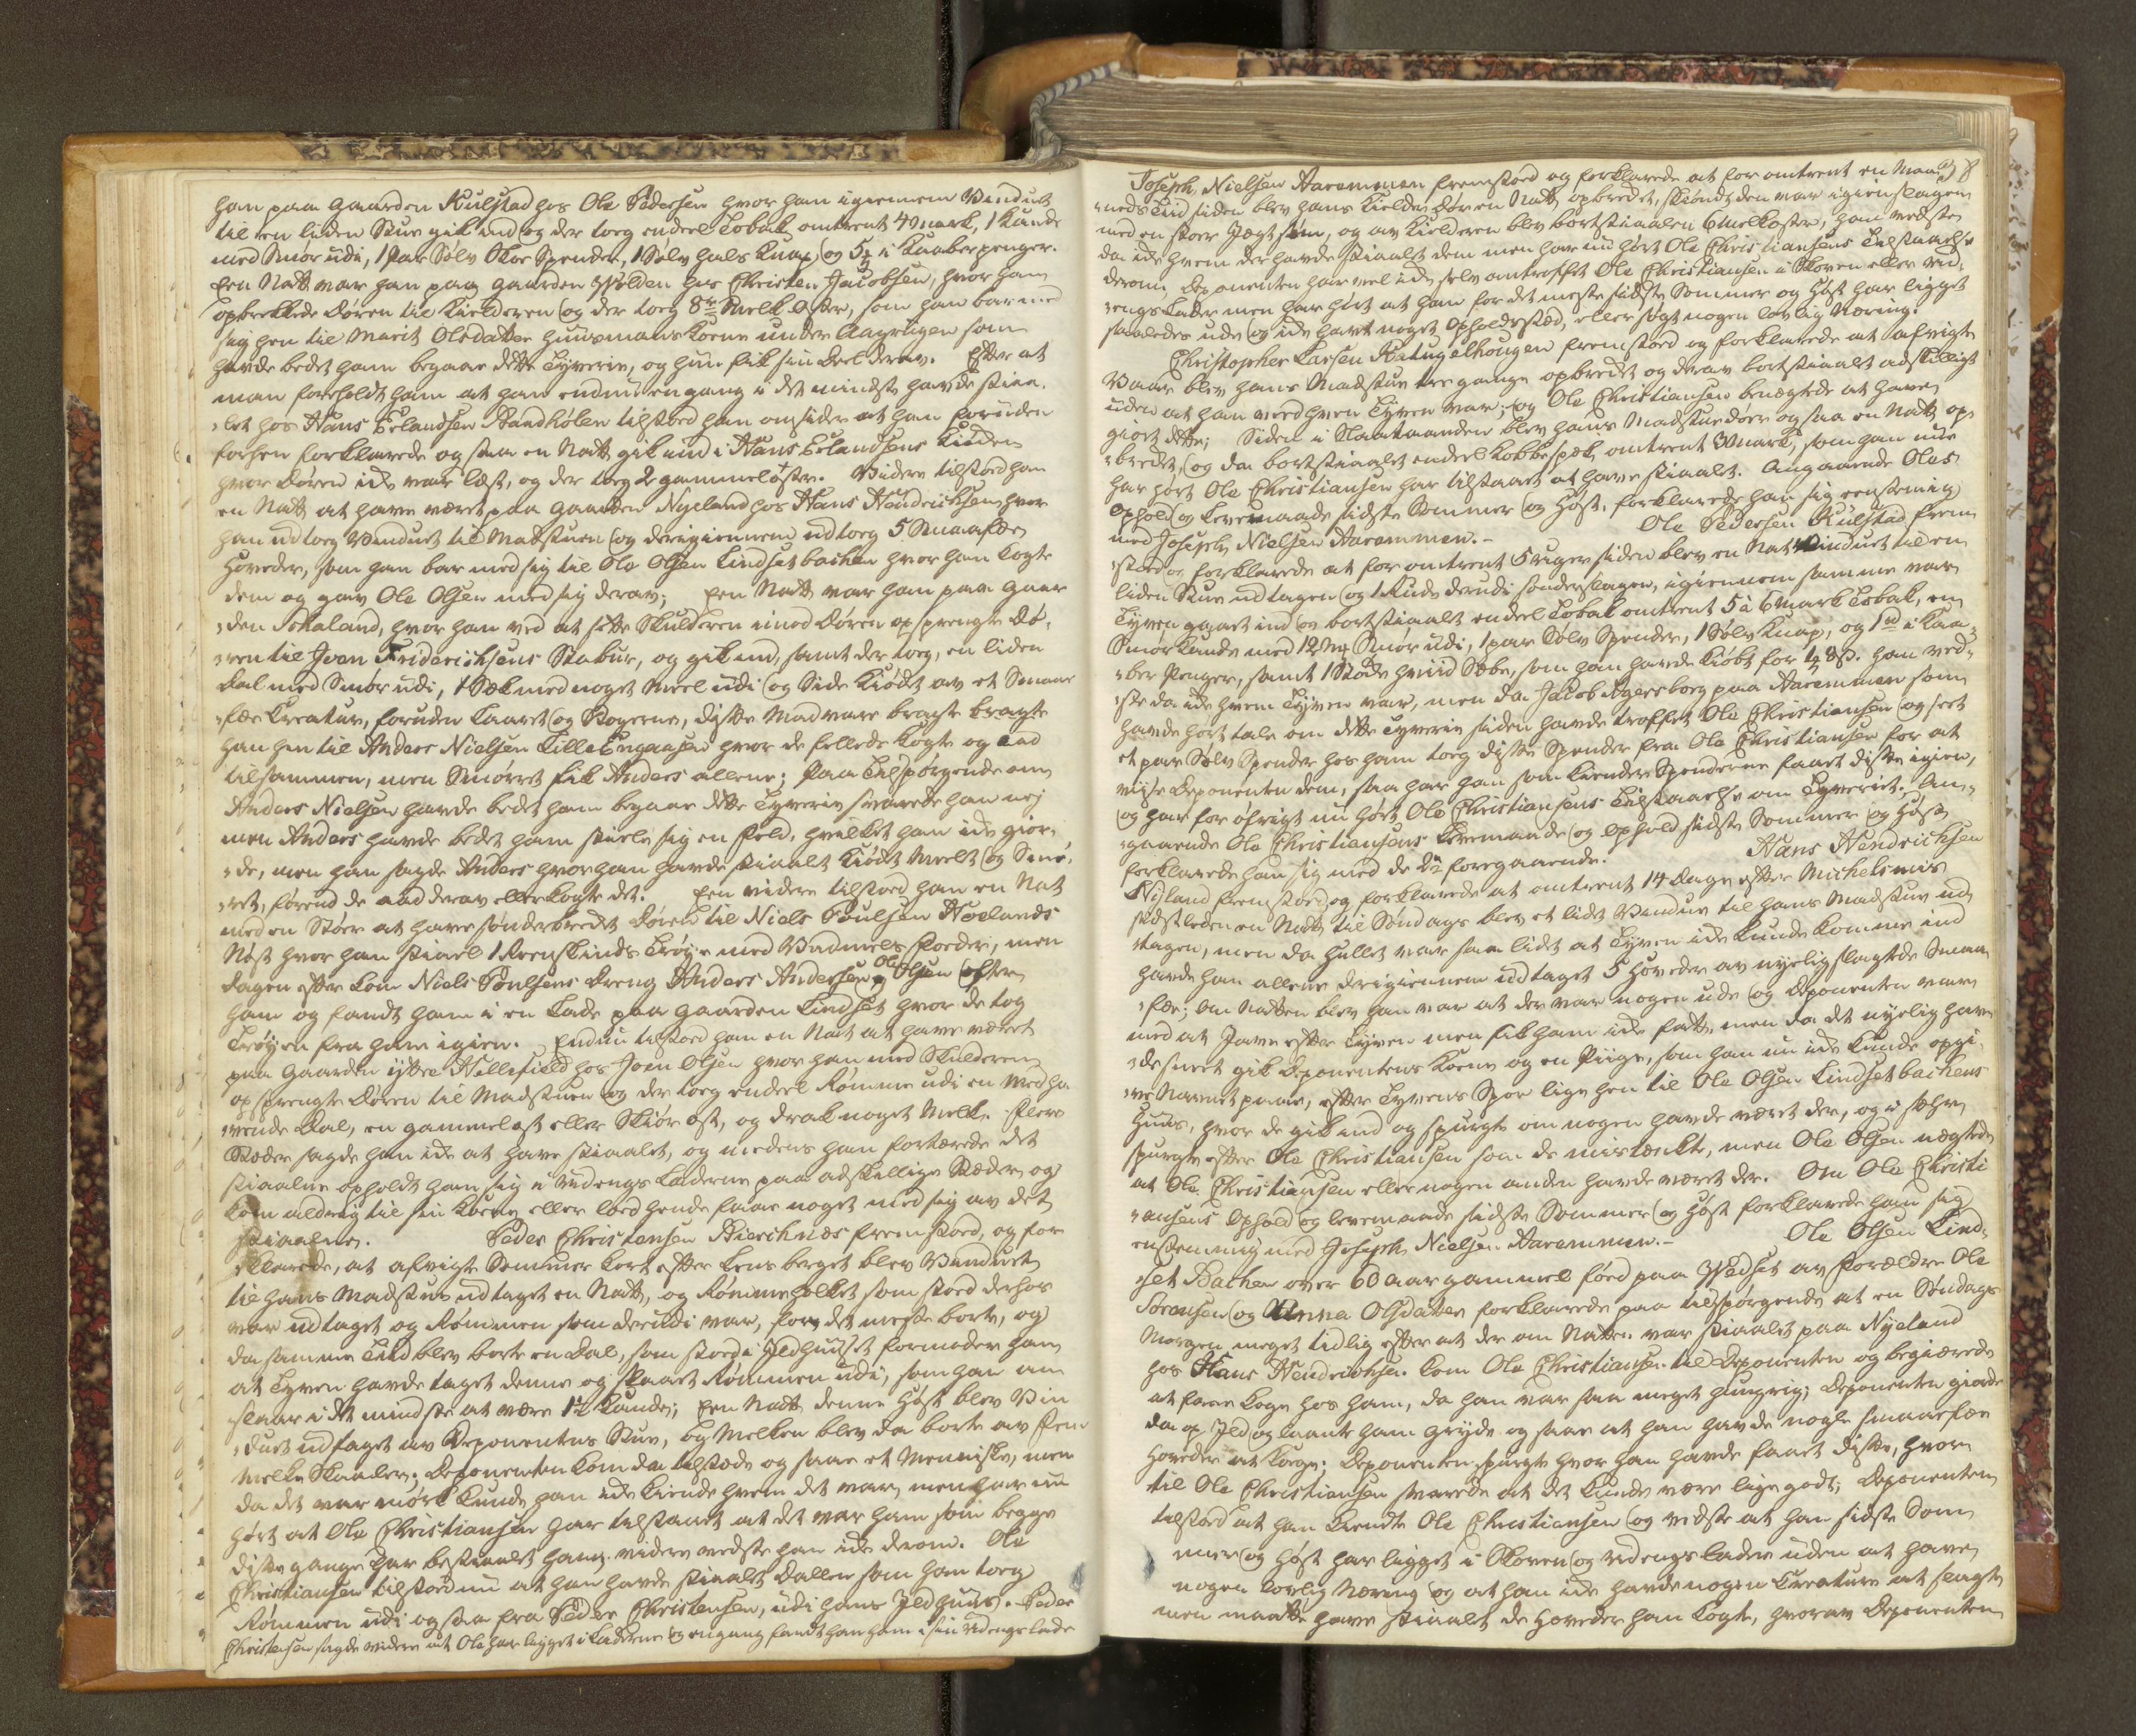 han paa Gaarden Kulstad hos Ole Pedersen hvor han igiennem Vinduet
til en liden Stue gik ind og der toeg endeel Tobak omtrent 4 Mark, 1 Kande
med Smør udi, 1 Par Sølv Skoe Spender, 1 Sølv hals Knap og 5 i Kaaberpenger.
Een Natt var han paa Gaarden hos Christen Jacobsen, hvor han
opbrekkede Døren til Kielderen og der toeg 8te Melk Oster, som han bar med
sig hen til Marit Olsdatter Huusmands Koene under Aagerlien som
havde bedet ham begaae dette Tyverie, og hun fik sin Deel derav. Efter at
man foreholdt ham at han endnu engang i det mindste havde stiaa-
let hos Hans Erlandsen Sandhølen tilstoed han omsider at han foruden
forhen forklarede ogsaa en Natt gik ind i Hans Erlandsens Kielder
hvor Døren ikke var læst, og der toeg 2 gammeloster. Videre tilstoed han
en Natt at have været paa Gaarden Nyeland hos Hans Hendrichsen hvor
han udtoeg Vinduet til Matstuen og derigiennem udtoeg 5 Smaafæe
Hoveder, som han bar med sig til Ole Olsen Lindsetbachen hvor han kogte
dem og gav Ole Olsen med sig derav; Een Natt var han paa Gaar-
den Forkaland, hvor han ved at sette Skulderen imod Døren opsprengte Dø-
ren til Joen Friderichsens Stabur, og gik ind, samt der toeg, en liden
Dal med Smør udi, 1 Sæk med noget Meel udi og Side Kiødt av et Smaae
fæe Creatur, foruden Laaret og Bogerne, disse Madvare bragte
han hen til Anders Nielsen Lille Engaasen hvor de fellede kogte og aad
tilsammen, men Smørret fik Anders allene; Paa Tilspørgende om
Anders Nielsen havde bedet ham begaae dette Tyverie svarede han nej
men Anders havde bedet ham stiele sig en Feld, hvilket han ikke gior-
de, men han sagde Anders hvor han havde stiaalet Kiødt Meelet og Smø-
ret, førend de aad derav eller kogte det. Een videre tilstoed han en Nat
med en Stør at have sønderbrekt Døren til Niels Poulsen Hoelands
Nøst hvor han stiael 1 Reenskinds Trøye med Vadmels Foeder, men
Dagen efter kom Niels Poulsens Dreng Anders Andersen og Ole Olsen efter
ham og fandt ham i en Lade paa Gaarden Lindset hvor de tog
Trøyen fra ham igien. Endnu tilstoed han en Natt at have været
paa Gaarden ytre Hellefield hos Joen Olsen hvor han med Skulderen
opsprengte Døren til Madstuen og der toeg endeel Rømme udi en Medha-
vende Dal, en gammelost eller Skiør ost, og drak noget Melk. Flere
Stæder sagde han ikke at have stiaalet, og medens han fortærede det
stiaalne opholdt han sig i Udengs Laderne paa adskillige Stæder, og
kom aldrig til sin Koene eller loed hende faae noget med sig av det
stiaalne. Peder Christensen Bierchnes fremstoed, og for
klarede, at afvigte Sommer kort efter Lensberget blev Vinduet
til hans Madstue udtaget en Natt, og Rømmekolket som stoed derhos
var udtaget og Rømmen som derudi var, for det meste borte, og
da samme Tiid blev borte en Dal, som stoed i Ildhuuset formoder han
at Tyven havde taget denne og slaaet Rømmen udi, som han an
slaar i det mindste at være 1½ Kande; Een Natt denne Høst blev Vin
duet udtaget av Deponentens Stue, og Melken blev da borte av Fem
Melke Skaaler; Deponenten kom da tilstæde og saae et Menniske, men
da det var mørk kunde han ikke kiende hvem det var, men har nu
hørt at Ole Christiansen har tilstaaet at det var ham som begge
disse gange har bestiaalet ham, videre vedste han ikke derom. Ole
Christiansen tilstoed nu at han havde stiaalet Dallen som han toeg
Rømmen udi ogsaa fra Peder Christensen, udi hans Ildhuus. Peder
Christensen sagde videre at Ole har ligget i Laderne og engang fandt han ham i sin Udengs lade
Joseph Nielsen Aaremmen fremstoed og forklarede at for omtrent en Maa-
neds Tiid siden blev hans Kielder Dør en Natt opbrekt, skiøndt den var igienslagen
med en stoer Jægt søm, og av Kielderen blev bortstiaalen 6 Melkoster, han vedste
da ikke hvem der havde stiaalet dem men har nu hørt Ole Christiansens Tilstaaelse
derom. Deponenten har vel ikke selv antroffet Ole Christiansen i Skoven eller Ud-
engs Lader men har hørt at han for det meste sidste Sommer og Høst har ligget
saaledes ude og ikke havt noget Opholdssted, eller søgt nogen lovlig Næring.
Christopher Larsen Katugelhougen fremstoed og forklarede at afvigte
Vaar blev hans Madstue tre gange opbrekt og derav bortstiaalet adskilligt
uden at han veed hvem Tyven var, og Ole Christiansen benægtede at have
giort dette; Siden i Slaataanden blev hans Madstuedør ogsaa en Natt op-
brekt, og da bortstiaalet endeel Kobbespæk, omtrent 3 Mark, som han nu
har hørt Ole Christiansen har tilstaaet at have stiaalet. Angaaende Oles
Ophold og Levemaade sidste Sommer og Høst, forklarede han sig eenstemig
med Joseph Nielsen Aaremmen.- Ole Pedersen Kulstad frem
stoed og forklarede at for omtrent 5 uger siden blev en Nat Vinduet til en
liden Stue udtagen og 1 Rude derudi sønderslagen, igiennem samme var
Tyven gaaet ind og bortstiaalet endeel Tobak omtrent 5 à 6 Mark Tobak, en
Smør Kande med 12 Mk Smør udi, 1 par Sølv Spender, 1 Sølv Knap, og 1 i Kaa-
ber Penger, samt 1 Støde hviid Sæbe, som han havde kiøbt for 4 ß. han ved-
ste da ikke hvem Tyven var, men da Jacob Agersborg paa Aaremmen som
havde hørt tale om dette Tyverie siden havde troffet Ole Christiansen og seet
et par Sølv Spender hos ham toeg disse Spender fra Ole Christiansen for at
viise Deponenten dem, saa har han som kiendte Spenderne faaet disse igien,
og har for øfrigt nu hørt Ole Christiansens Tilstaaelse om Tyveriet. An-
gaaende Ole Christiansens Levemaade og Ophold sidste Sommer og Høst
forklarede han sig med de 2de foregaaende. Hans Hendrichsen
Nyland fremstoed og forklarede at omtrent 14 Dage efter Michelsmis
sidstleden en Natt til Søndags blev et lidet Vindue til hans Madstue ud
tagen, men da Hullet var saa lidet at Tyven ikke kunde komme ind
havde han allene derigiennem udtaget 5 Hoveder av nyelig slagtede Smaa
fæe; Om Natten blev han var at der var nogen ude og Deponenten var
med at Jave efter Tyven men fik ham ikke fatt, men da det nyelig hav
de sneet gik Deponentens Koene og en Piige, som han nu ikke kunde opgi-
ve Navnet paa, efter Tyvens Spor lige hen til Ole Olsen Lindsetbachens
Huus, hvor de gik ind og spurgte om nogen havde været der, og i sær
spurgte efter Ole Christiansen som de mistenkte, men Ole Olsen nægtede
at Ole Christiansen eller nogen anden havde været der. Om Ole Christi
ansens Ophold og levemaade sidste Sommer og Høst forklarede han sig
enstemmig med Joseph Nielsen Aaremmen.- Ole Olsen Lind-
set Bachen over 60 aar gammel føed paa av Forældre Ole
Sørensen og Anna Olsdatter forklarede paa tilspørgende at en Søndags
Morgen meget tidlig efter at der om Natten var stiaalet paa Nyeland
hos Hans Hendrichsen kom Ole Christiansen til Deponenten og begiærede
at faae koge hos ham, da han var saa meget hungrig; Deponenten giorde
da op Ild og laante ham Gryde og saae at han havde nogle Smaafæe
Hoveder at koege. Deponenten spurgte hvor han havde faaet disse, hvor
til Ole Christiansen svarede at det kunde være lige godt; Deponenten
tilstoed at han kiendte Ole Christiansen og vidste at han sidste Som
mer og Høst har ligget i Skoven og Udengs lader uden at have
nogen lovlig Næring og at han ikke havde nogen Creature at slagte
men maatte have stiaalet de Hoveder han kogte, hvorav Deponenten